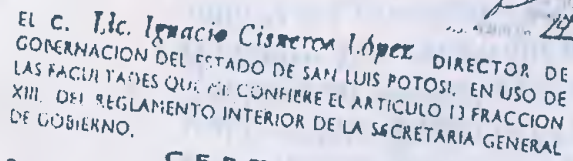 EL C. Lic. Ignacio Cisneros López DIRECTOR DE
GOBERNACION DEL ESTADO DE SAN LUIS POTOSI, EN USO DE
LAS FACULTADES QUE ME CONFIERE EL ARTICULO 13 FRACCION
XIII. DEL REGLAMENTO INTERIOR DE LA SECRETARIA GENERAL
DE GOBIERNO.